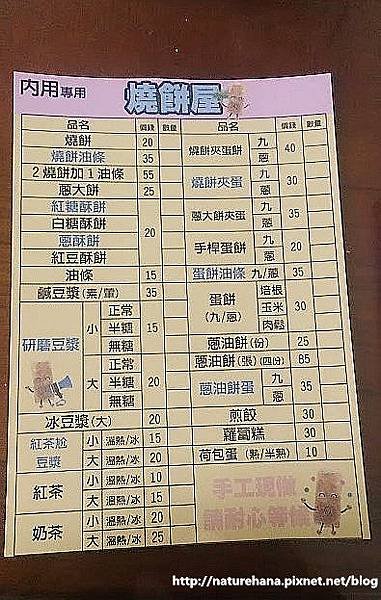 內用專用 燒餅屋
品名 價錢 數量
燒餅 20
燒餅油條 35
2燒餅加1油條 55
蔥大餅 25
紅糖酥餅
白糖酥餅
蔥酥餅
紅豆酥餅
20
油條 15
鹹豆漿(素/葷) 35
研磨豆漿
小 正常 半糖 無糖 15
大 正常 半糖 無糖 20
冰豆漿(大) 20
紅茶尬豆漿
小 溫熱/冰 15
大 溫熱/冰 20
紅茶
小 溫熱/冰 10
大 溫熱/冰 15
奶茶
小 溫熱/冰 20
大 溫熱/冰 25
品名 價錢 數量
燒餅夾蛋餅 九 蔥 40
燒餅夾蛋 九 蔥 30
蔥大餅夾蛋 九 蔥 35
手桿蛋餅 九 蔥 20
蛋餅油條 九/蔥 35
蛋餅(九/蔥) 培根 玉米 肉鬆 30
蔥油餅(份) 25
蔥油餅(張)(四份) 85
蔥油餅蛋 九 蔥 35
煎餃 30
蘿蔔糕 30
荷包蛋(熟/半熟) 10
手工現做
請耐心等候
http://naturehana.pixnet.net/blog